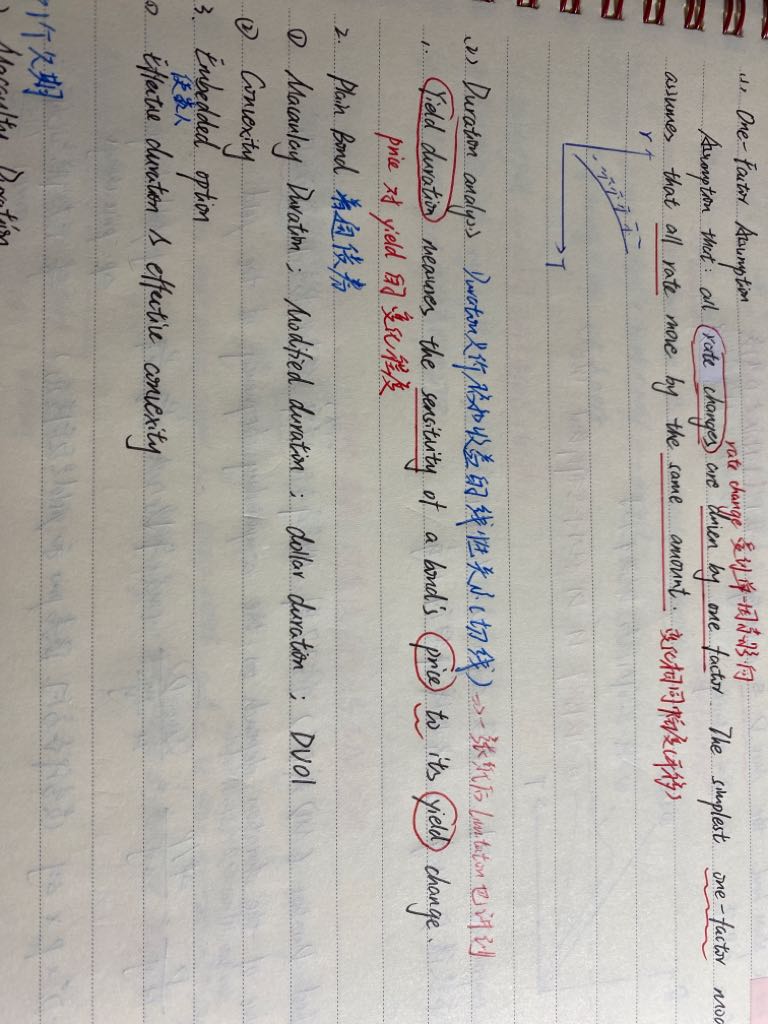 (1) One-Factor Assumption
rate change 受到单一因素影响
Assumption that: all rate changes are driven by one factor. The simplest one-factor
assumes that all rate move by the same amount. 变化相同幅度(平移)
r↑
水平平移
T
(2) Duration analysis Duration是价格和收益的线性关系(切线)
1. Yield duration measures the sensitivity of a bond's price to its yield change.
price 对 yield 的变化程度
2. Plain Bond 普通债券
① Macaulay Duration; Modified duration; dollar duration; DV01
② Convexity
3. Embedded option
债券人
① Effective duration & effective convexity
久期
Macaulay Duration